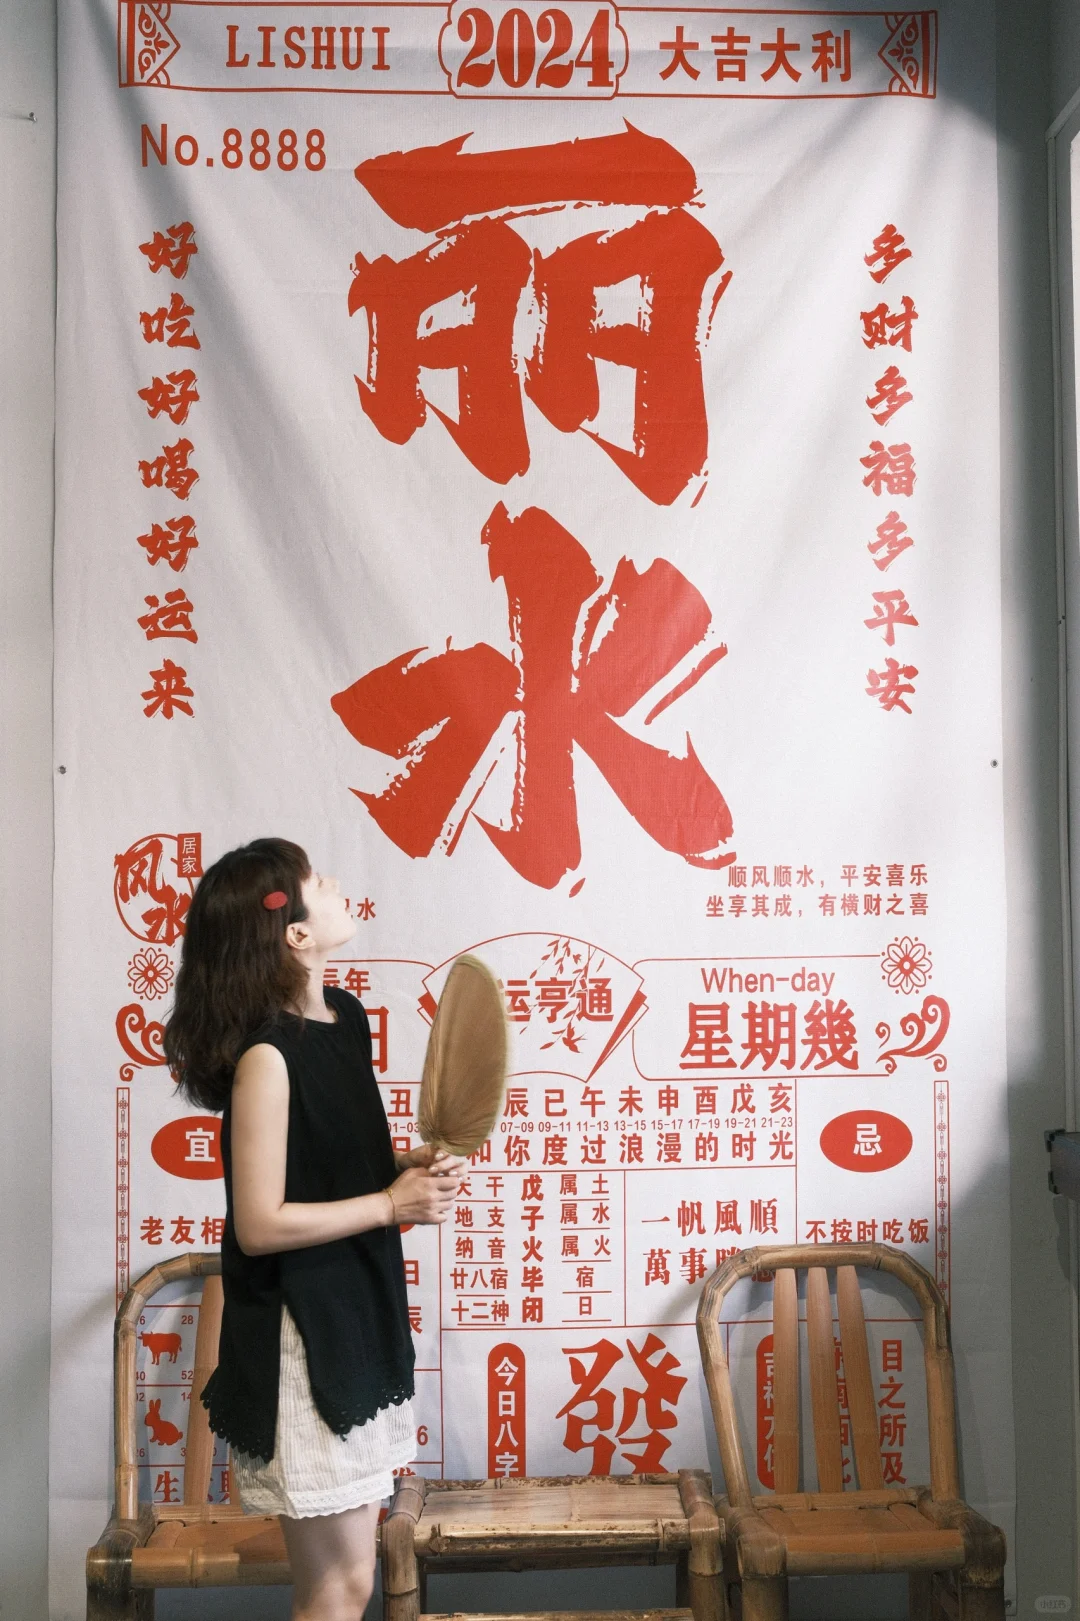 LISHUI 2024 大吉大利
No.8888
丽水
好吃好喝好运来
多财多福多平安
居家
风水
顺风顺水，平安喜乐
坐享其成，有横财之喜
水
辰年
运亨通
When-day
星期幾
日
丑
辰 已 午 未 申 酉 戊 亥
07-09 09-11 11-13 13-15 15-17 17-19 19-21 21-23
和你度过浪漫的时光
宜
忌
老友相
不按时吃饭
天干 戊 属土
地支 子 属水
纳音 火 属火
廿八宿 毕 宿
十二神 闭 日
一帆風順
萬事勝
今日八字
發
目之所及
小红书